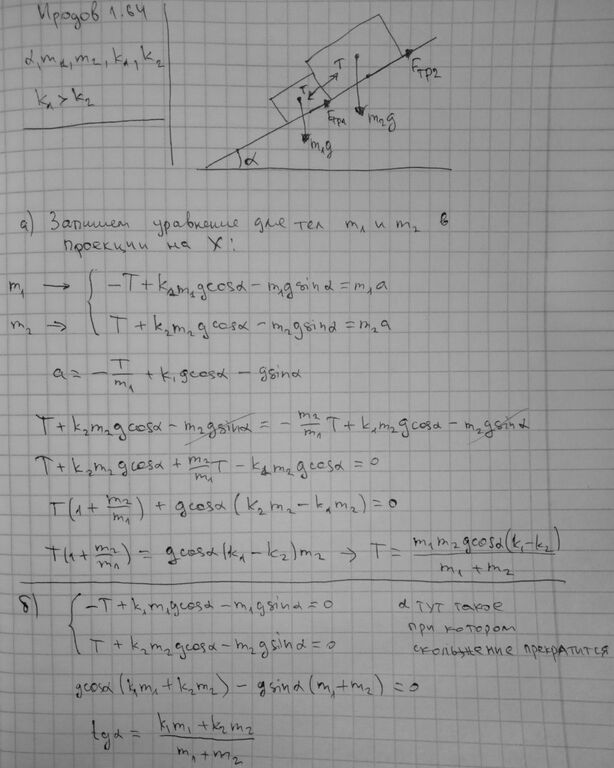 Иродов 1.64
α, m₁, m₂, k₁, k₂
k₁ > k₂
T
T
Fтр2
Fтр1
m₂g
m₁g
α
а) Запишем уравнение для тел m₁ и m₂ в
проекции на X:
m₁ → { -T + k₁m₁gcosα - m₁gsinα = m₁a
m₂ → { T + k₂m₂gcosα - m₂gsinα = m₂a
a = - T/m₁ + k₁gcosα - gsinα
T + k₂m₂gcosα - m₂gsinα = - m₂/m₁ T + k₁m₂gcosα - m₂gsinα
T + k₂m₂gcosα + m₂/m₁ T - k₁m₂gcosα = 0
T(1 + m₂/m₁) + gcosα (k₂m₂ - k₁m₂) = 0
T(1 + m₂/m₁) = gcosα(k₁ - k₂)m₂ → T = m₁m₂gcosα(k₁-k₂)/(m₁ + m₂)
б) { -T + k₁m₁gcosα - m₁gsinα = 0
T + k₂m₂gcosα - m₂gsinα = 0
α тут такое
при котором
скольжение прекратится
gcosα (k₁m₁ + k₂m₂) - gsinα (m₁ + m₂) = 0
tgα = (k₁m₁ + k₂m₂)/(m₁ + m₂)